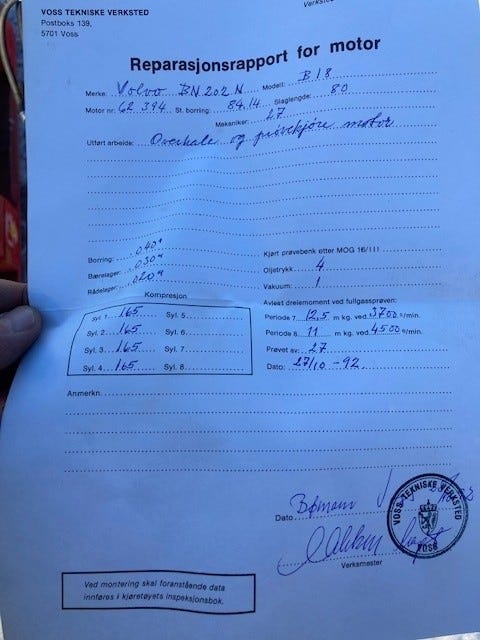 VOSS TEKNISKE VERKSTED
Postboks 139,
5701 Voss
Verksted
Reparasjonsrapport for motor
Merke: Volvo BN 202 N Modell: B18
Motor nr: 62 394 St. borring: 84.14 Slaglengde: 80
Mekaniker: 27
Utført arbeide: Overhale og prøvekjøre motor
Borring: .040"
Bærelager: .030"
Rådelager: .020"
Kjørt prøvebenk etter MOG 16/111
Oljetrykk: 4
Vakuum: 1
Kompresjon
Syl. 1 165 Syl. 5
Syl. 2 165 Syl. 6
Syl. 3 165 Syl. 7
Syl. 4 165 Syl. 8
Avlest dreiemoment ved fullgassprøven:
Periode 7 12,5 m kg. ved 3700 o/min.
Periode 8 11 m kg. ved 4500 o/min.
Prøvet av: 27
Dato: 27/10 -92
Anmerkn.
Dato
VOSS TEKNISKE VERKSTED
VOSS
Verksmester
Ved montering skal foranstående data
innføres i kjøretøyets inspeksjonsbok.